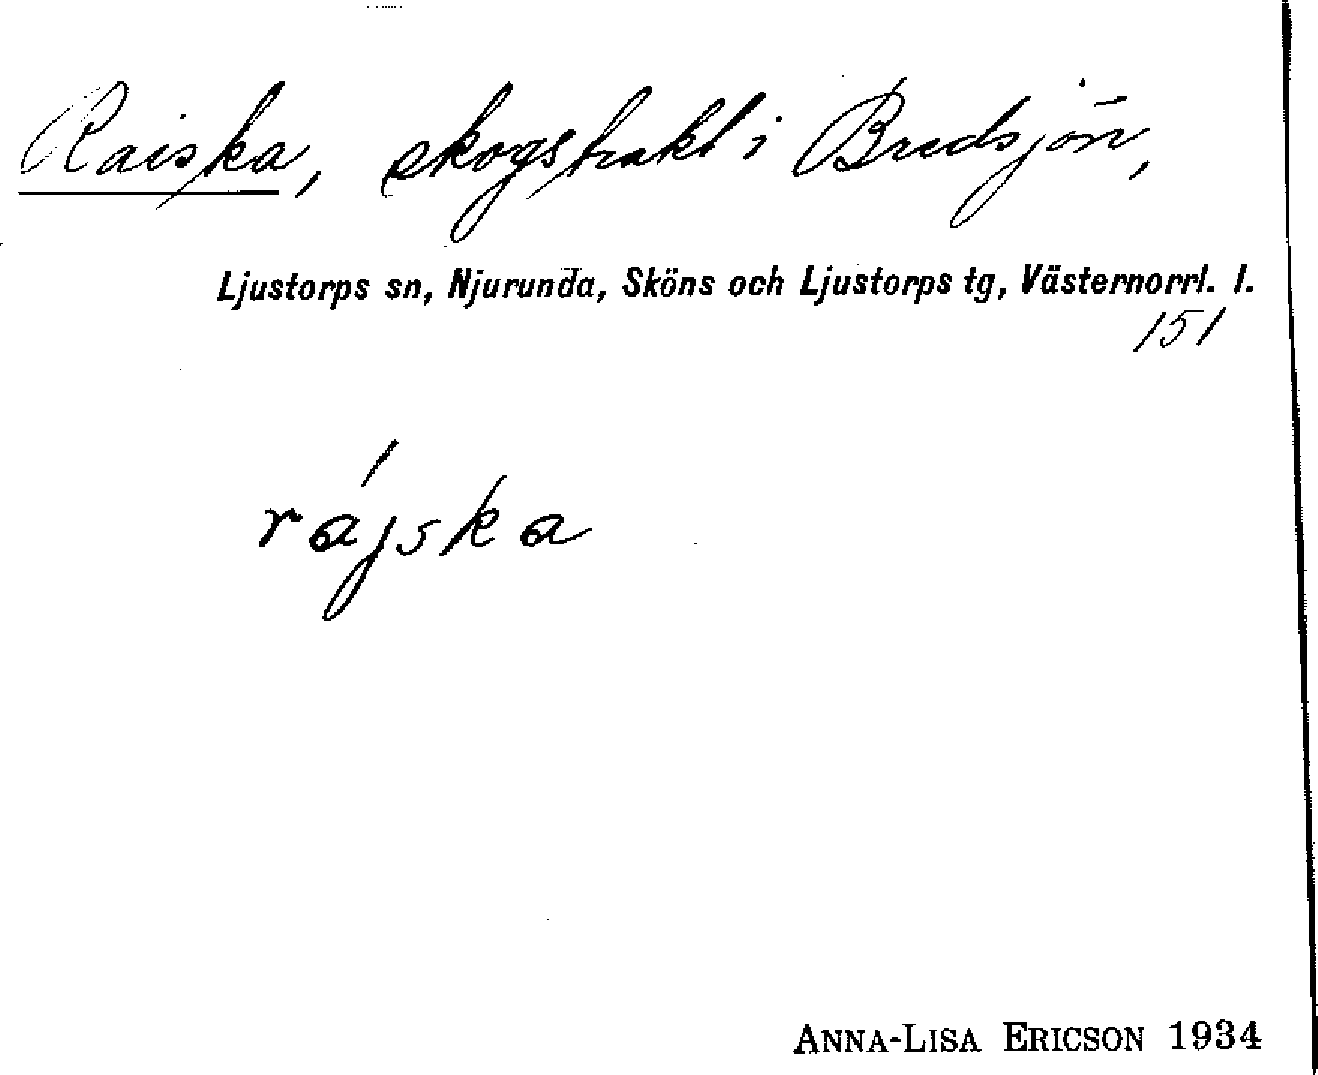 Raiska, skogstrakt i Bredsjön,
Ljustorps sn, Njurunda, Sköns och Ljustorps tg, Västernorrl. l.
151
rájska
ANNA-LISA ERICSON 1934